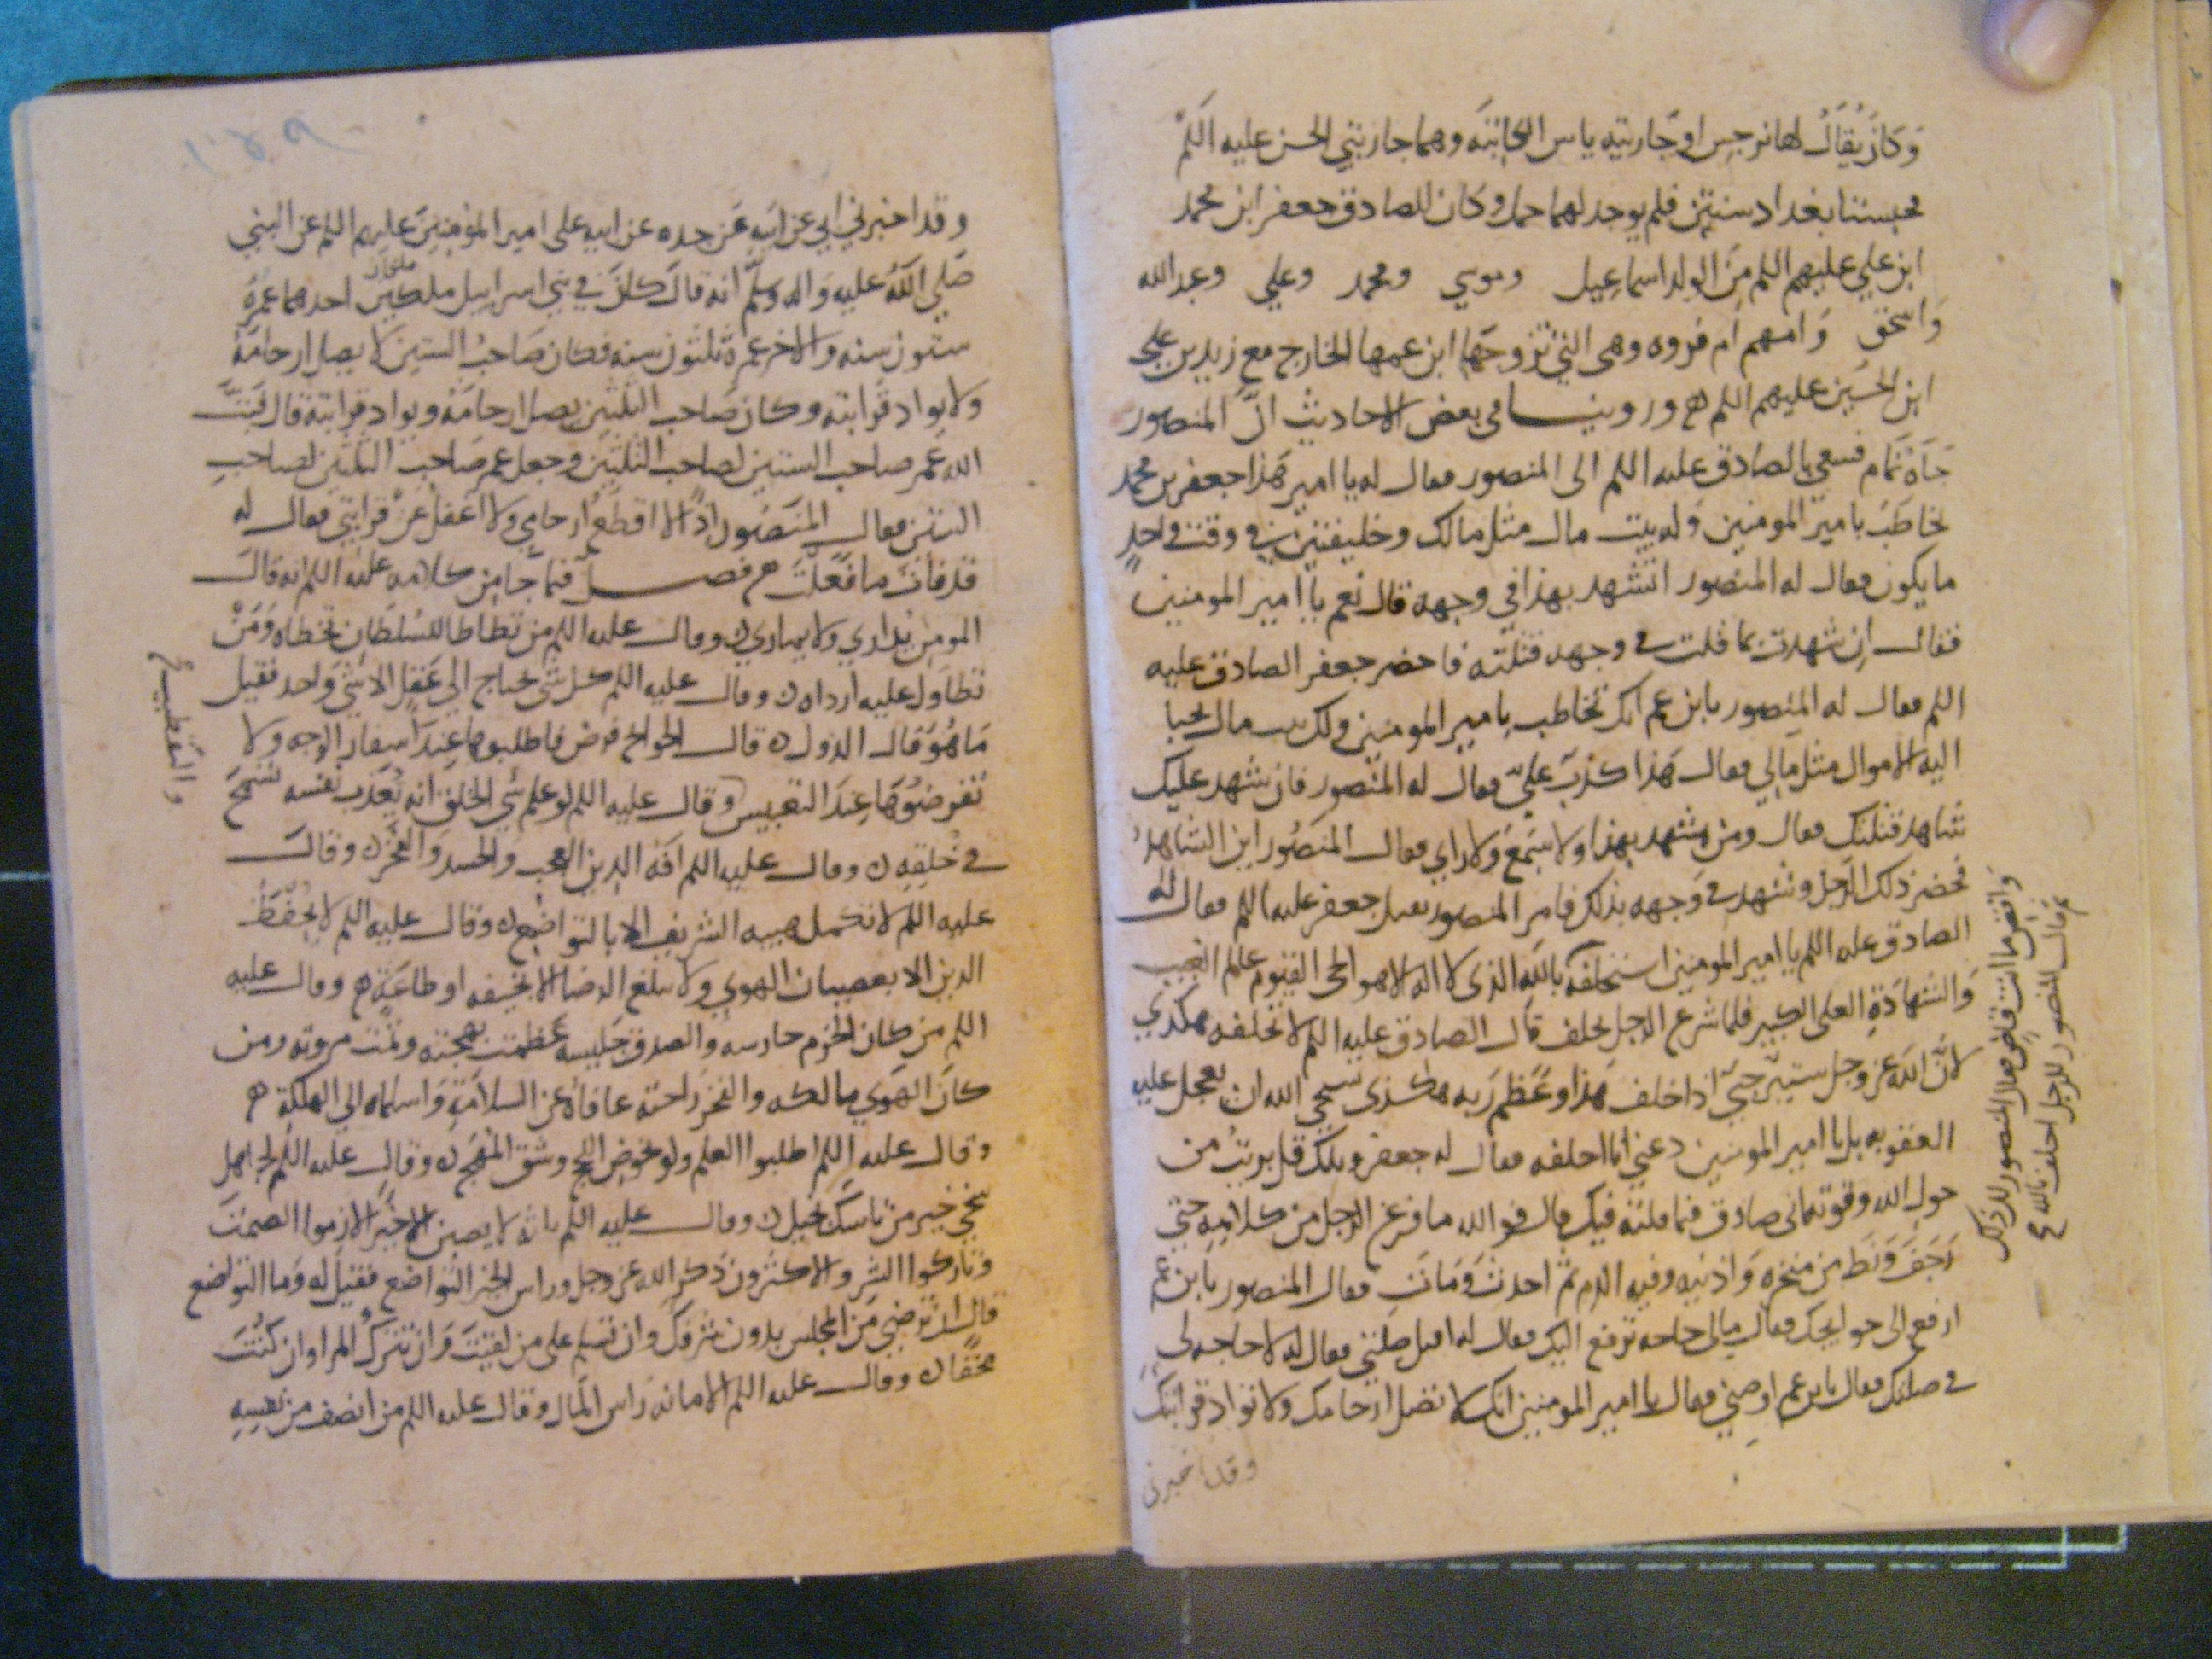 وَكَانَ يُقَالُ لها نرجس او جاريته ياس الخاينه وهما جاريتي الحسن عليه اللم
فحبستا ببغداد سنتين فلم يوجد لهما حمل وكان للصادق جعفر ابن محمد
ابن علي عليهم اللم من الولد اسماعيل وموسي ومحمد وعلي وعبد الله
واسحق وامهم ام فروه وهى التي تزوجها ابن عمها الخارج مع زيد بن علي
ابن الحسين عليهم اللم ه وروينا في بعض الاحاديث ان المنصور
جاه نمام فسعى بالصادق عليه اللم الى المنصور فقال له يا امير هذا جعفر بن محمد
يخاطب بامير المومنين وله بيت مال مثل مالك وخليفتين في وقت واحد
ما يكون فقال له المنصور اتشهد بهذا في وجهه قال نعم يا امير المومنين
فقال ان شهدت بما قلت في وجهه قتلته فاحضر جعفر الصادق عليه
اللم فقال له المنصور يابن عم انك تخاطب بامير المومنين ولك بيت مال يجبا
اليه الاموال مثل مالي فقال هذا كذب علي فقال له المنصور فان شهد عليك
شاهد قتلتك فقال ومن يشهد بهذا ولا سمع ولا راي فقال المنصور اين الشاهد
فحضر ذلك الرجل وشهد في وجهه بذلك فامر المنصور بقتل جعفر عليه اللم فقال له
الصادق عليه اللم يا امير المومنين استحلفه بالله الذى لا اله الا هو الحى القيوم عالم الغيب
والشهادة العلى الكبير فلما شرع الرجل يحلف قال الصادق عليه اللم لا تحلفه هكذي
لان الله عز وجل ستير حيي اذا حلف بهذا وعظم ربه هكذى يستحي الله ان يعجل عليه
العقوبه بل يا امير المومنين دعني انا احلفه فقال له جعفر ويلك قل بريت من
حول الله وقوته اني صادق فيما قلته فيك قال فوالله ما فرغ الرجل من كلامه حتى
رجف ونط من منخره واذنيه وفيه الدم ثم احدث ومات فقال المنصور يابن عم
ارفع الى حوايجك فقال مالى حاجه ترفع اليك فقال له اقبل صلتي فقال له لا حاجه لى
في صلتك فقال يابن عم اوصني فقال يا امير المومنين انك لا تصل ارحامك ولا تواد قرابتك
وقد اخبرنى
واقض ما انت قاض فقال المنصور للذ ذلك
ثم قال المنصور للرجل احلف بالله
وقد اخبرني ابي عن ابيه عن جده عن ابيه على امير المؤمنين عليهم اللم عن النبي
صَلى اللَّهُ عليه واله وسلم انه قال كان في بني اسراييل ملكين احدهما عمره
ملكان
ستون سنه والاخر عمره ثلثون سنه فكان صاحب الستين لا يصل ارحامه
ولا يواد قرابته وكان صاحب الثلثين يصل ارحامه ويواد قرابته قال فبتت
الله عمر صاحب الستين لصاحب الثلثين وجعل عمر صاحب الثلثين لصاحب
الستين فقال المنصور اذا لا اقطع ارحامي ولا اغفل عن قرابتي فقال له
قد فات ما فعلت ه فصل فيما جا من كلامه عليه اللم انه قال
المومن يداري ولا يماري ن وقال عليه اللم من تطاطا للسلطان تخطاه ومن
تطاول عليه ارداه ن وقال عليه اللم كل شى يحتاج الي عقل الا شى واحد فقيل
ما هو قال الدول ن قال الحوايج فرض فاطلبوها عند اسفار الوجه ولا
تفرضوها عند التعبيس وقال عليه اللم لو علم سئ الخلق انه يعذب نفسه تسمح
والتقطيب
في خلقه ن وقال عليه اللم افه الدين العجب والحسد والفخر ن وقال
عليه اللم لا تكمل هيبه الشريف الا بالتواضع ن وقال عليه اللم لا يحفظ
الدين الا بعصيان الهوي ولا يبلغ الرضا الا بخيفه او طاعة ه وقال عليه
اللم من كان الحزم حارسه والصدق جليسه عظمت بهجته وتمت مروته ومن
كان الهوي مالكه والفخر راحته عاقاه عن السلامة واسلماه الي الهلكة ه
وقال عليه اللم اطلبوا العلم ولو بخوض اللجج وشق المهج ن وقال عليه اللم لجاهل
سخي خير من ناسك بخيل ن وقال عليه اللم
وتاركوا الشر والاكثرون ذكر الله عز وجل وراس الخير التواضع فقيل له وما التواضع
قال ان ترضي من المجلس بدون شرفك وان تسلم على من لقيت وان تترك المرا وان كنت
محقا ن وقال عليه اللم الامانه راس المال وقال عليه اللم من انصف من نفسه